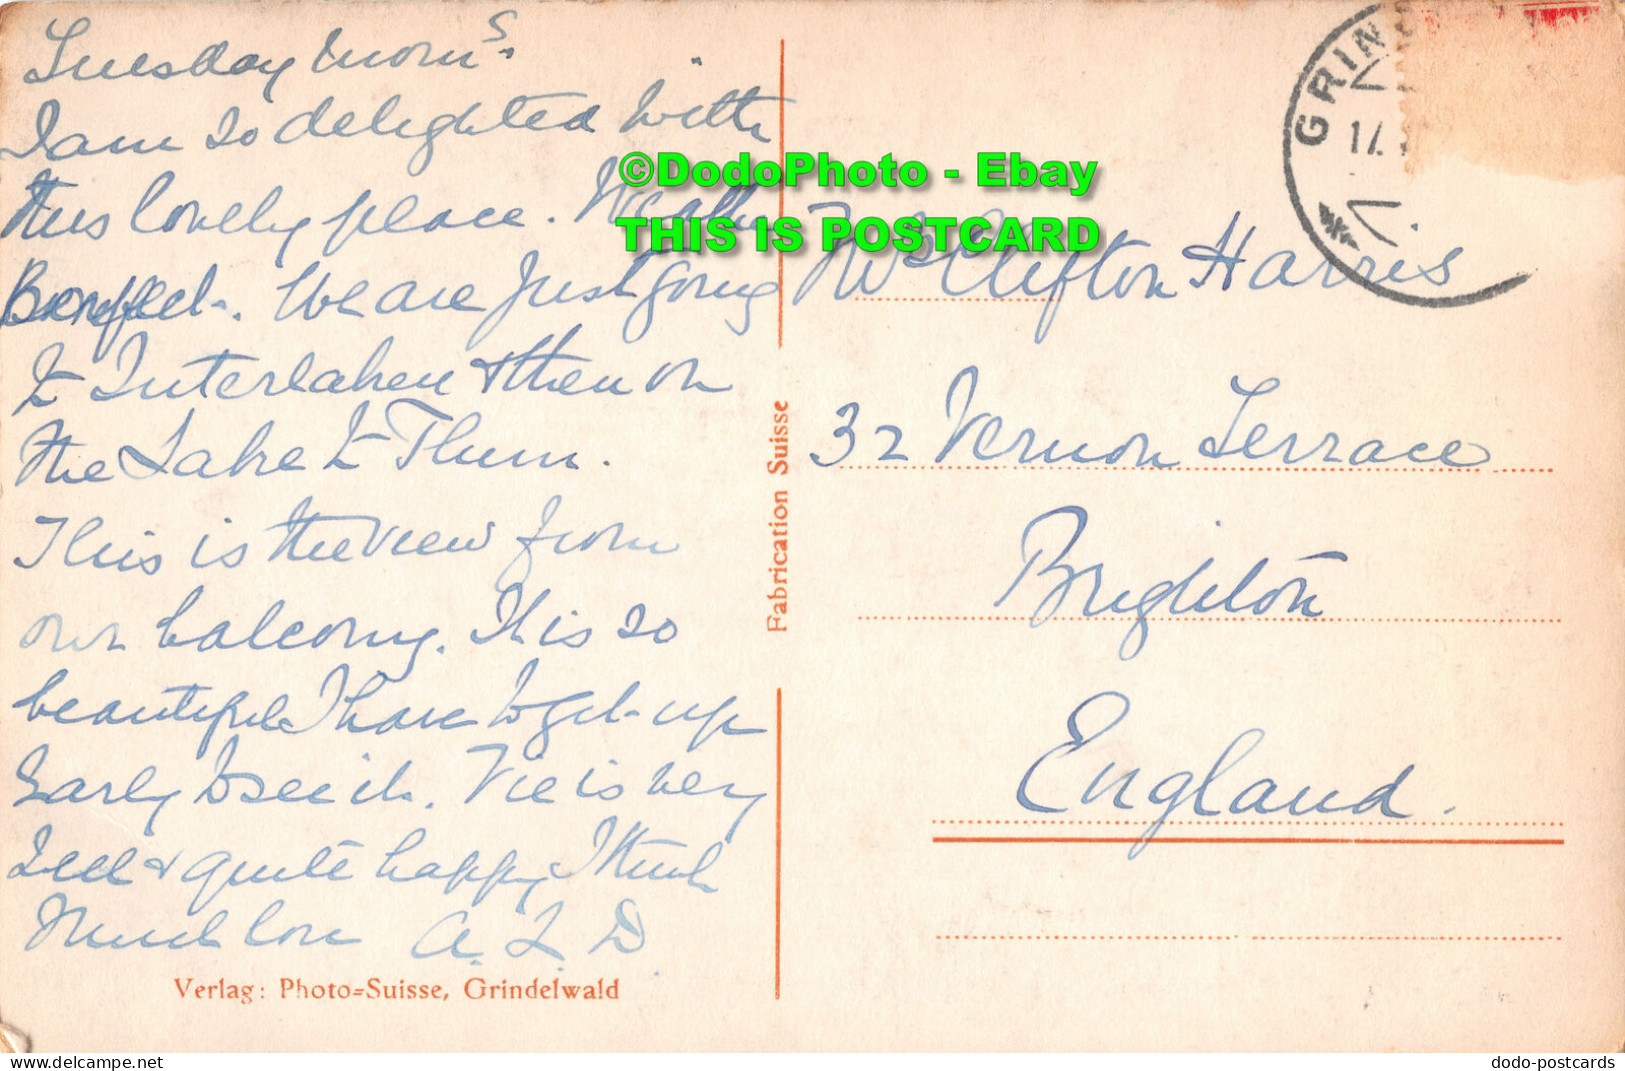 Tuesday morns.
I am so delighted with
this lovely place. Weather
Perfect. We are just going
to Interlaken & then on
the Lake to Thun.
This is the view from
our balcony. It is so
beautiful I have to get up
early to see it. Vie is very
well & quite happy I think
Much love A. L. D.
Verlag: Photo=Suisse, Grindelwald
Fabrication Suisse
©DodoPhoto - Ebay
THIS IS POSTCARD
GRIN
17.
Mrs Clifton Harris
32 Vernon Terrace
Brighton
England.
delcampe.net
dodo-postcards